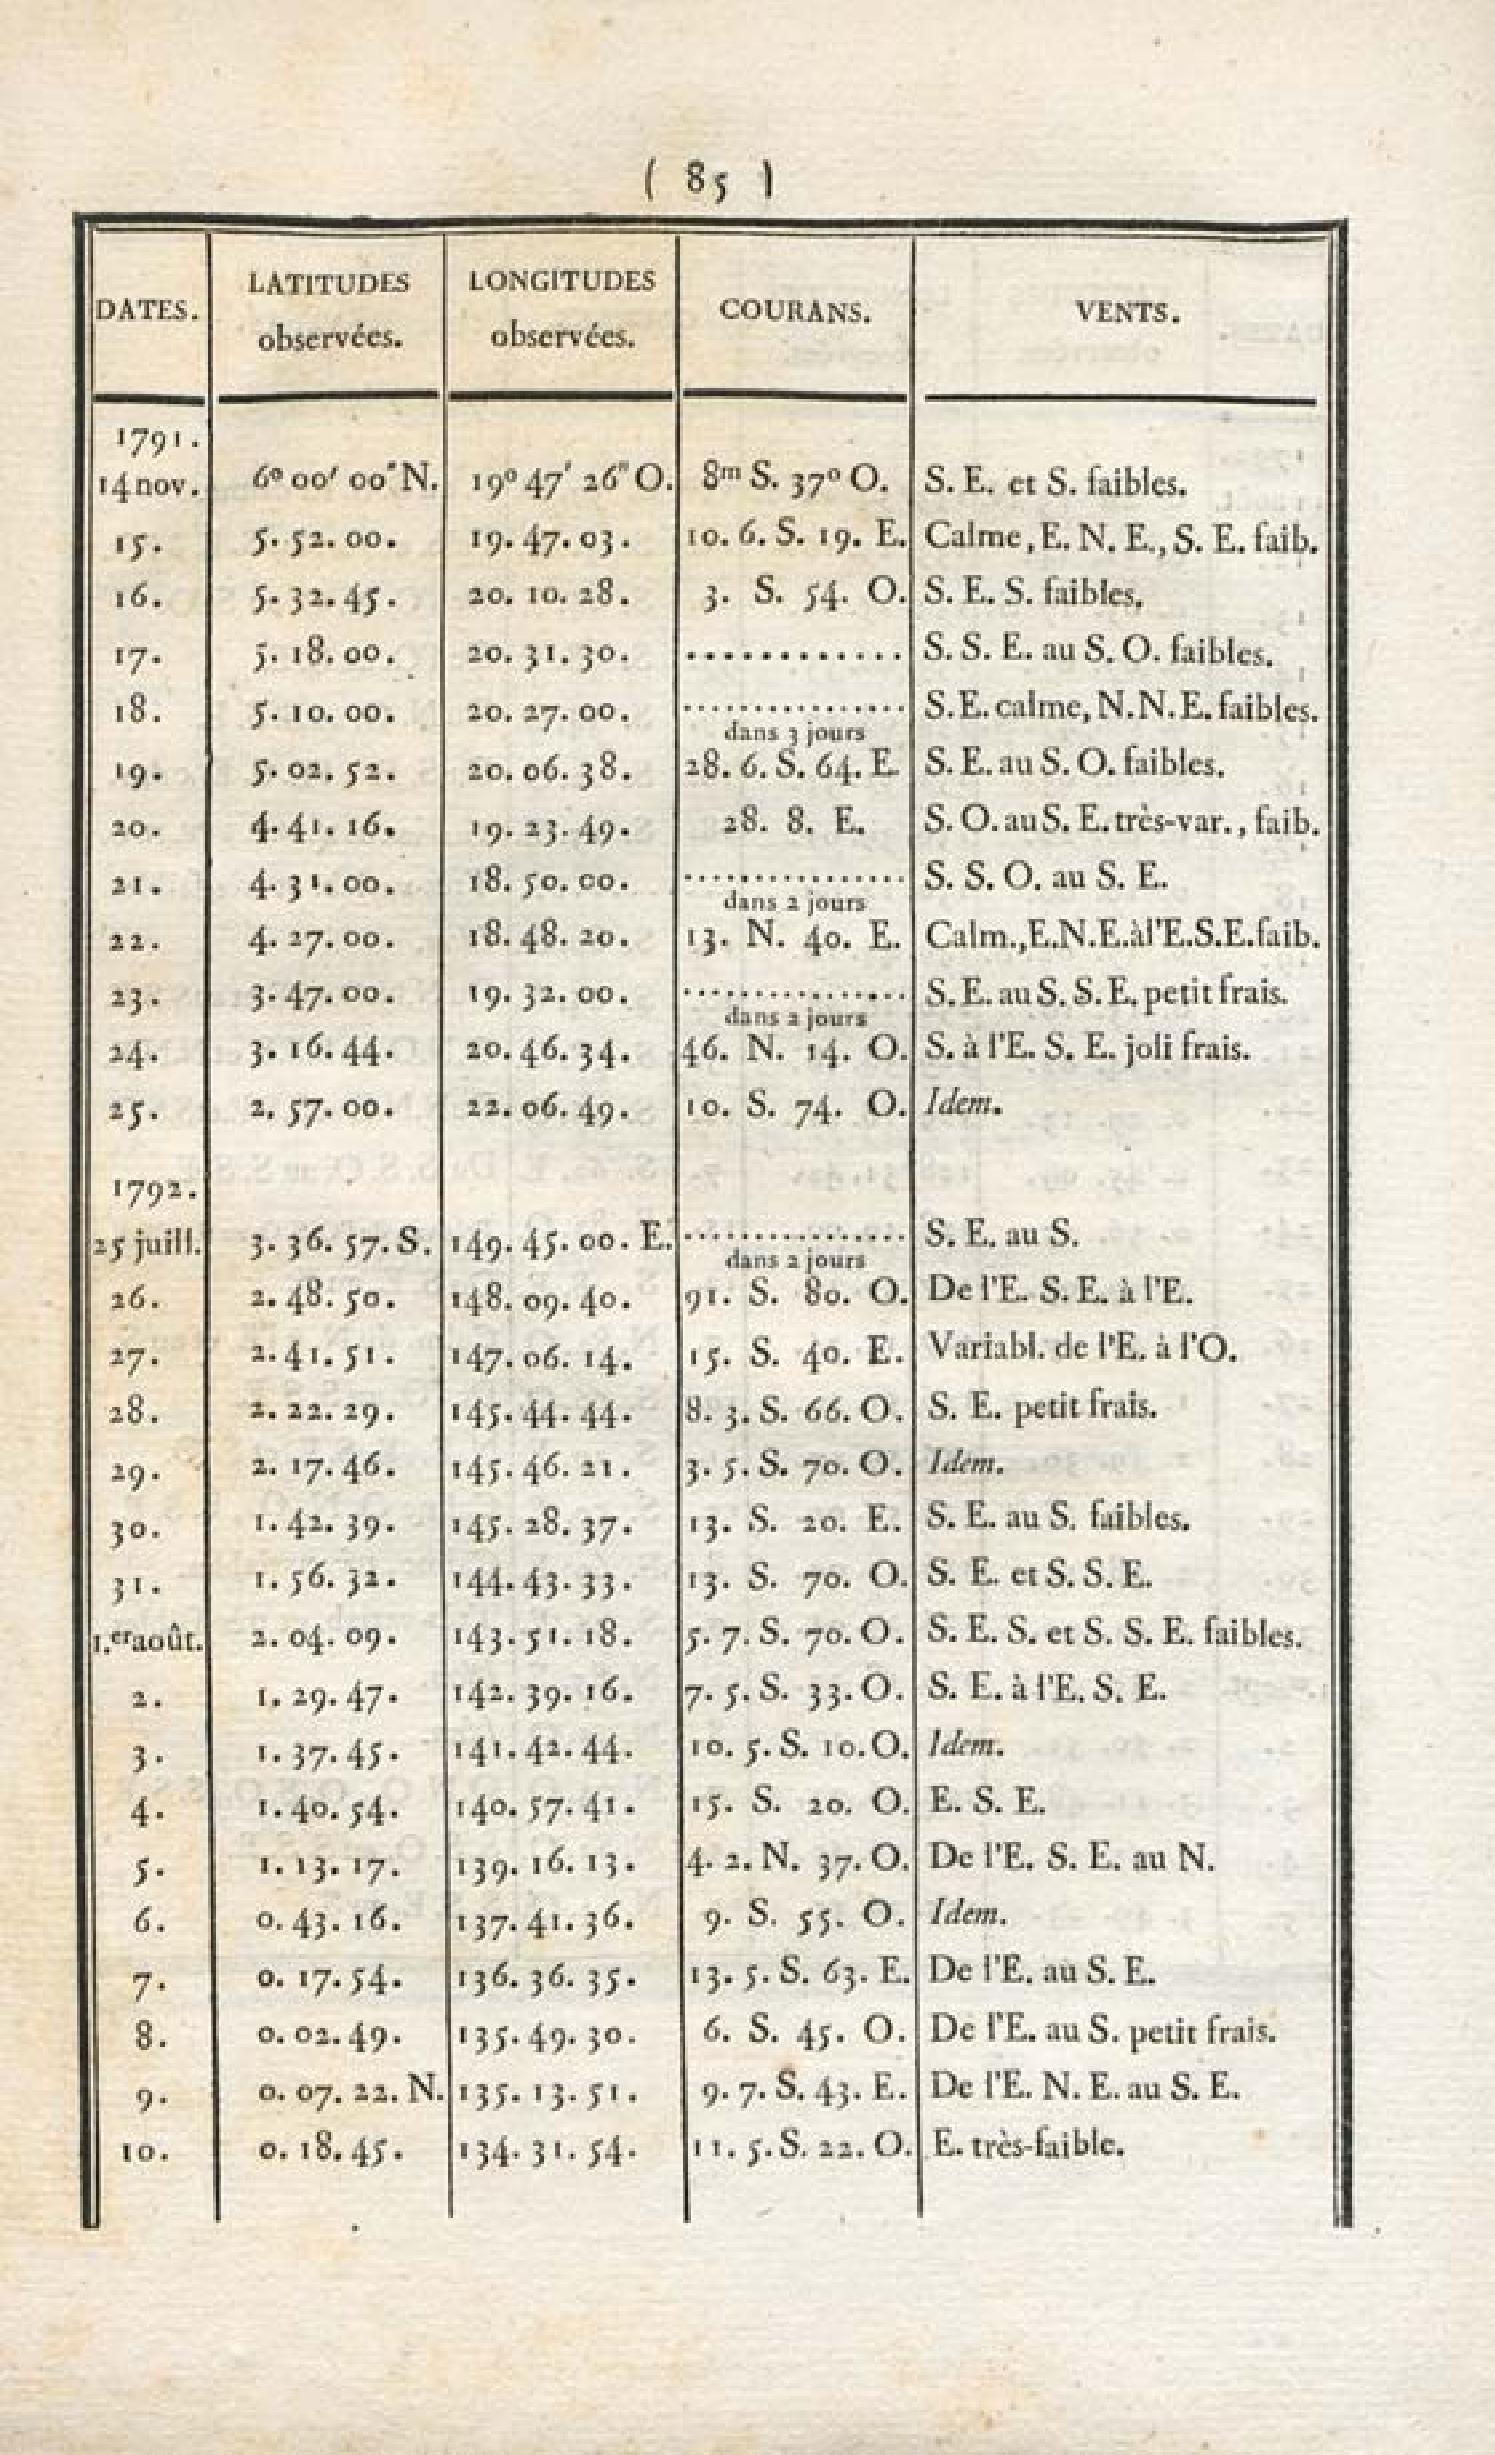 ( 85 )
DATES. LATITUDES observées. LONGITUDES observées. COURANS. VENTS.
1791.
14 nov. 6° 00′ 00″ N. 19° 47′ 26″ O. 8m S. 37° O. S. E. et S. faibles.
15. 5. 52. 00. 19. 47. 03. 10. 6. S. 19. E. Calme, E. N. E., S. E. faib.
16. 5. 32. 45. 20. 10. 28. 3. S. 54. O. S. E. S. faibles.
17. 5. 18. 00. 20. 31. 30. ............ S. S. E. au S. O. faibles.
18. 5. 10. 00. 20. 27. 00. ............... S. E. calme, N. N. E. faibles.
dans 3 jours
19. 5. 02. 52. 20. 06. 38. 28. 6. S. 64. E. S. E. au S. O. faibles.
20. 4. 41. 16. 19. 23. 49. 28. 8. E. S. O. au S. E. très-var., faib.
21. 4. 31. 00. 18. 50. 00. ............... S. S. O. au S. E.
dans 2 jours
22. 4. 27. 00. 18. 48. 20. 13. N. 40. E. Calm., E.N.E. à l'E.S.E. faib.
23. 3. 47. 00. 19. 32. 00. ............... S. E. au S. S. E. petit frais.
dans 2 jours
24. 3. 16. 44. 20. 46. 34. 46. N. 14. O. S. à l'E. S. E. joli frais.
25. 2. 57. 00. 22. 06. 49. 10. S. 74. O. Idem.
1792.
25 juill. 3. 36. 57. S. 149. 45. 00. E. ............... S. E. au S.
dans 2 jours
26. 2. 48. 50. 148. 09. 40. 91. S. 80. O. De l'E. S. E. à l'E.
27. 2. 41. 51. 147. 06. 14. 15. S. 40. E. Variabl. de l'E. à l'O.
28. 2. 22. 29. 145. 44. 44. 8. 3. S. 66. O. S. E. petit frais.
29. 2. 17. 46. 145. 46. 21. 3. 5. S. 70. O. Idem.
30. 1. 42. 39. 145. 28. 37. 13. S. 20. E. S. E. au S. faibles.
31. 1. 56. 32. 144. 43. 33. 13. S. 70. O. S. E. et S. S. E.
1.er août. 2. 04. 09. 143. 51. 18. 5. 7. S. 70. O. S. E. S. et S. S. E. faibles.
2. 1. 29. 47. 142. 39. 16. 7. 5. S. 33. O. S. E. à l'E. S. E.
3. 1. 37. 45. 141. 42. 44. 10. 5. S. 10. O. Idem.
4. 1. 40. 54. 140. 57. 41. 15. S. 20. O. E. S. E.
5. 1. 13. 17. 139. 16. 13. 4. 2. N. 37. O. De l'E. S. E. au N.
6. 0. 43. 16. 137. 41. 36. 9. S. 55. O. Idem.
7. 0. 17. 54. 136. 36. 35. 13. 5. S. 63. E. De l'E. au S. E.
8. 0. 02. 49. 135. 49. 30. 6. S. 45. O. De l'E. au S. petit frais.
9. 0. 07. 22. N. 135. 13. 51. 9. 7. S. 43. E. De l'E. N. E. au S. E.
10. 0. 18. 45. 134. 31. 54. 11. 5. S. 22. O. E. très-faible.